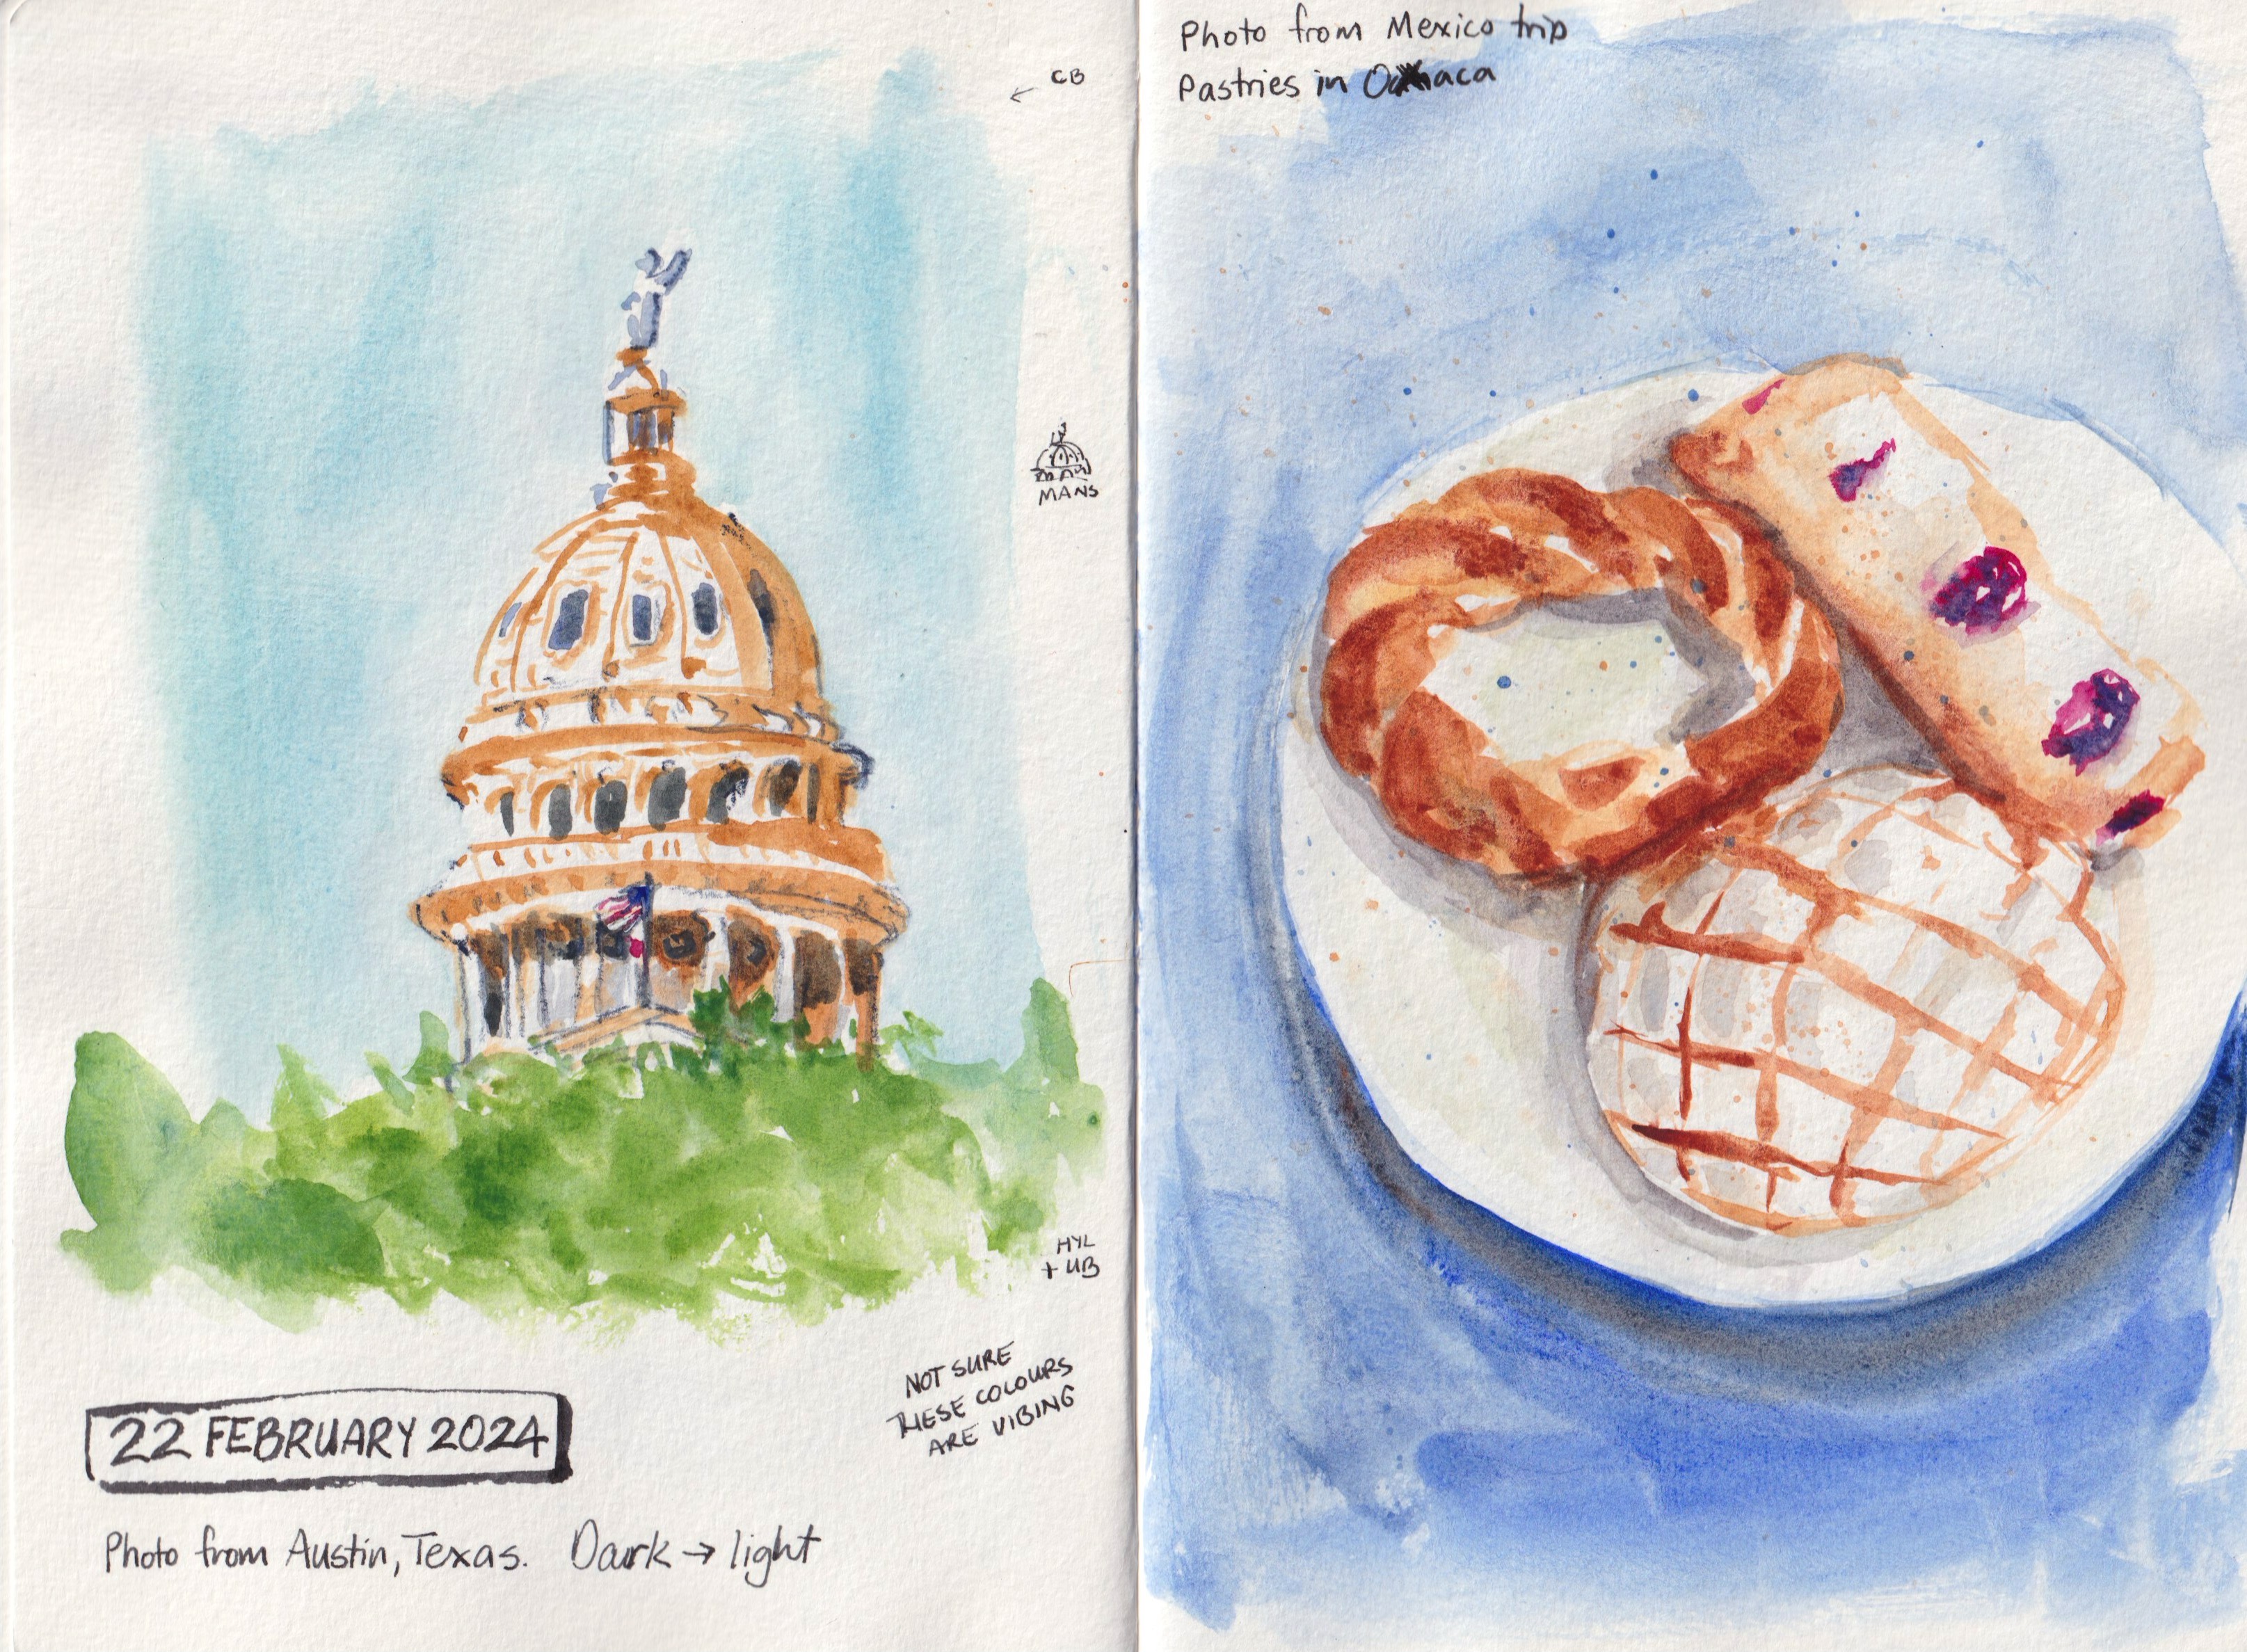 CB
MANS
HYL
+ UB
NOT SURE
THESE COLOURS
ARE VIBING
22 FEBRUARY 2024
Photo from Austin, Texas. Dark → light
Photo from Mexico trip
Pastries in Oaxaca